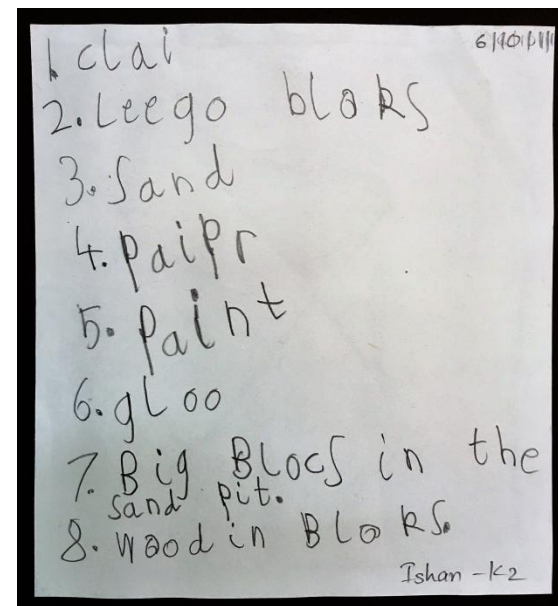 1. clai
2. Leego bloks
3. Sand
4. paipr
5. paint
6. gloo
7. Big Blocs in the
sand pit.
8. woodin Bloks.
Ishan - K2